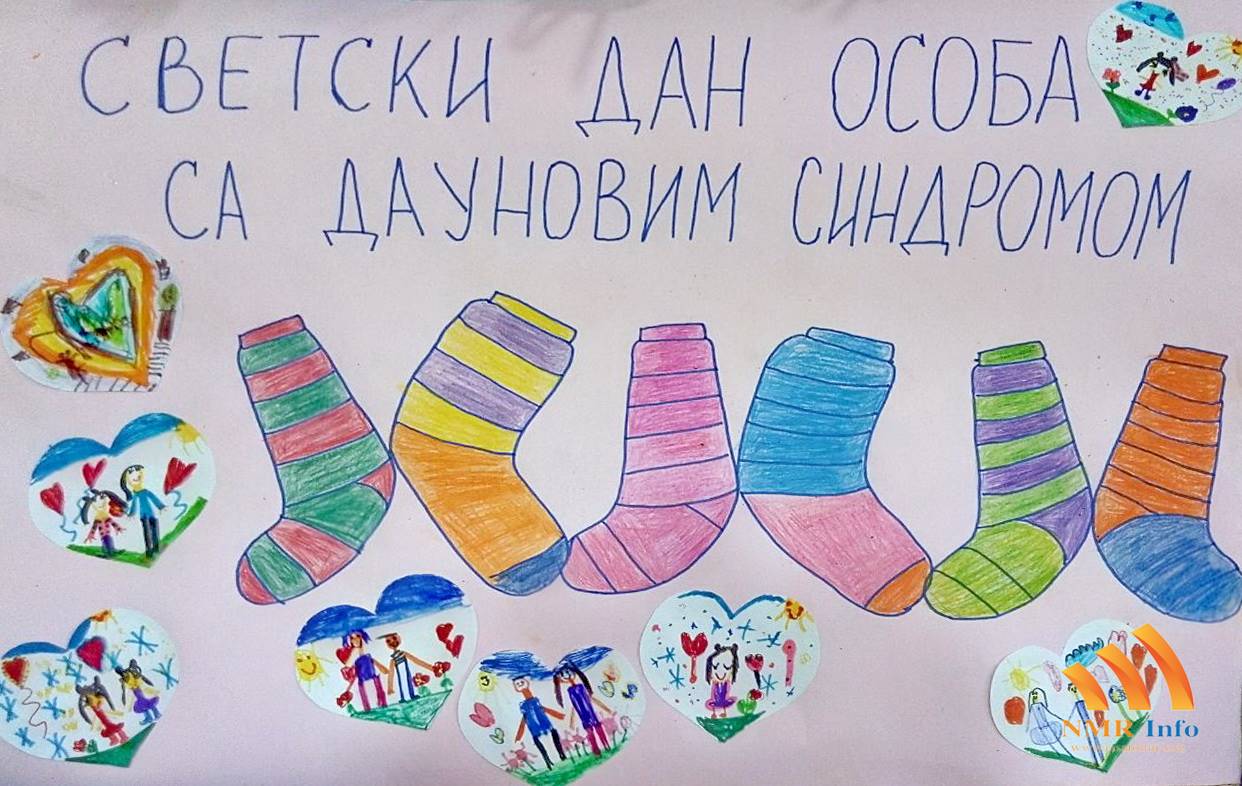 СВЕТСКИ ДАН ОСОБА
СА ДАУНОВИМ СИНДРОМОМ
NMR Info